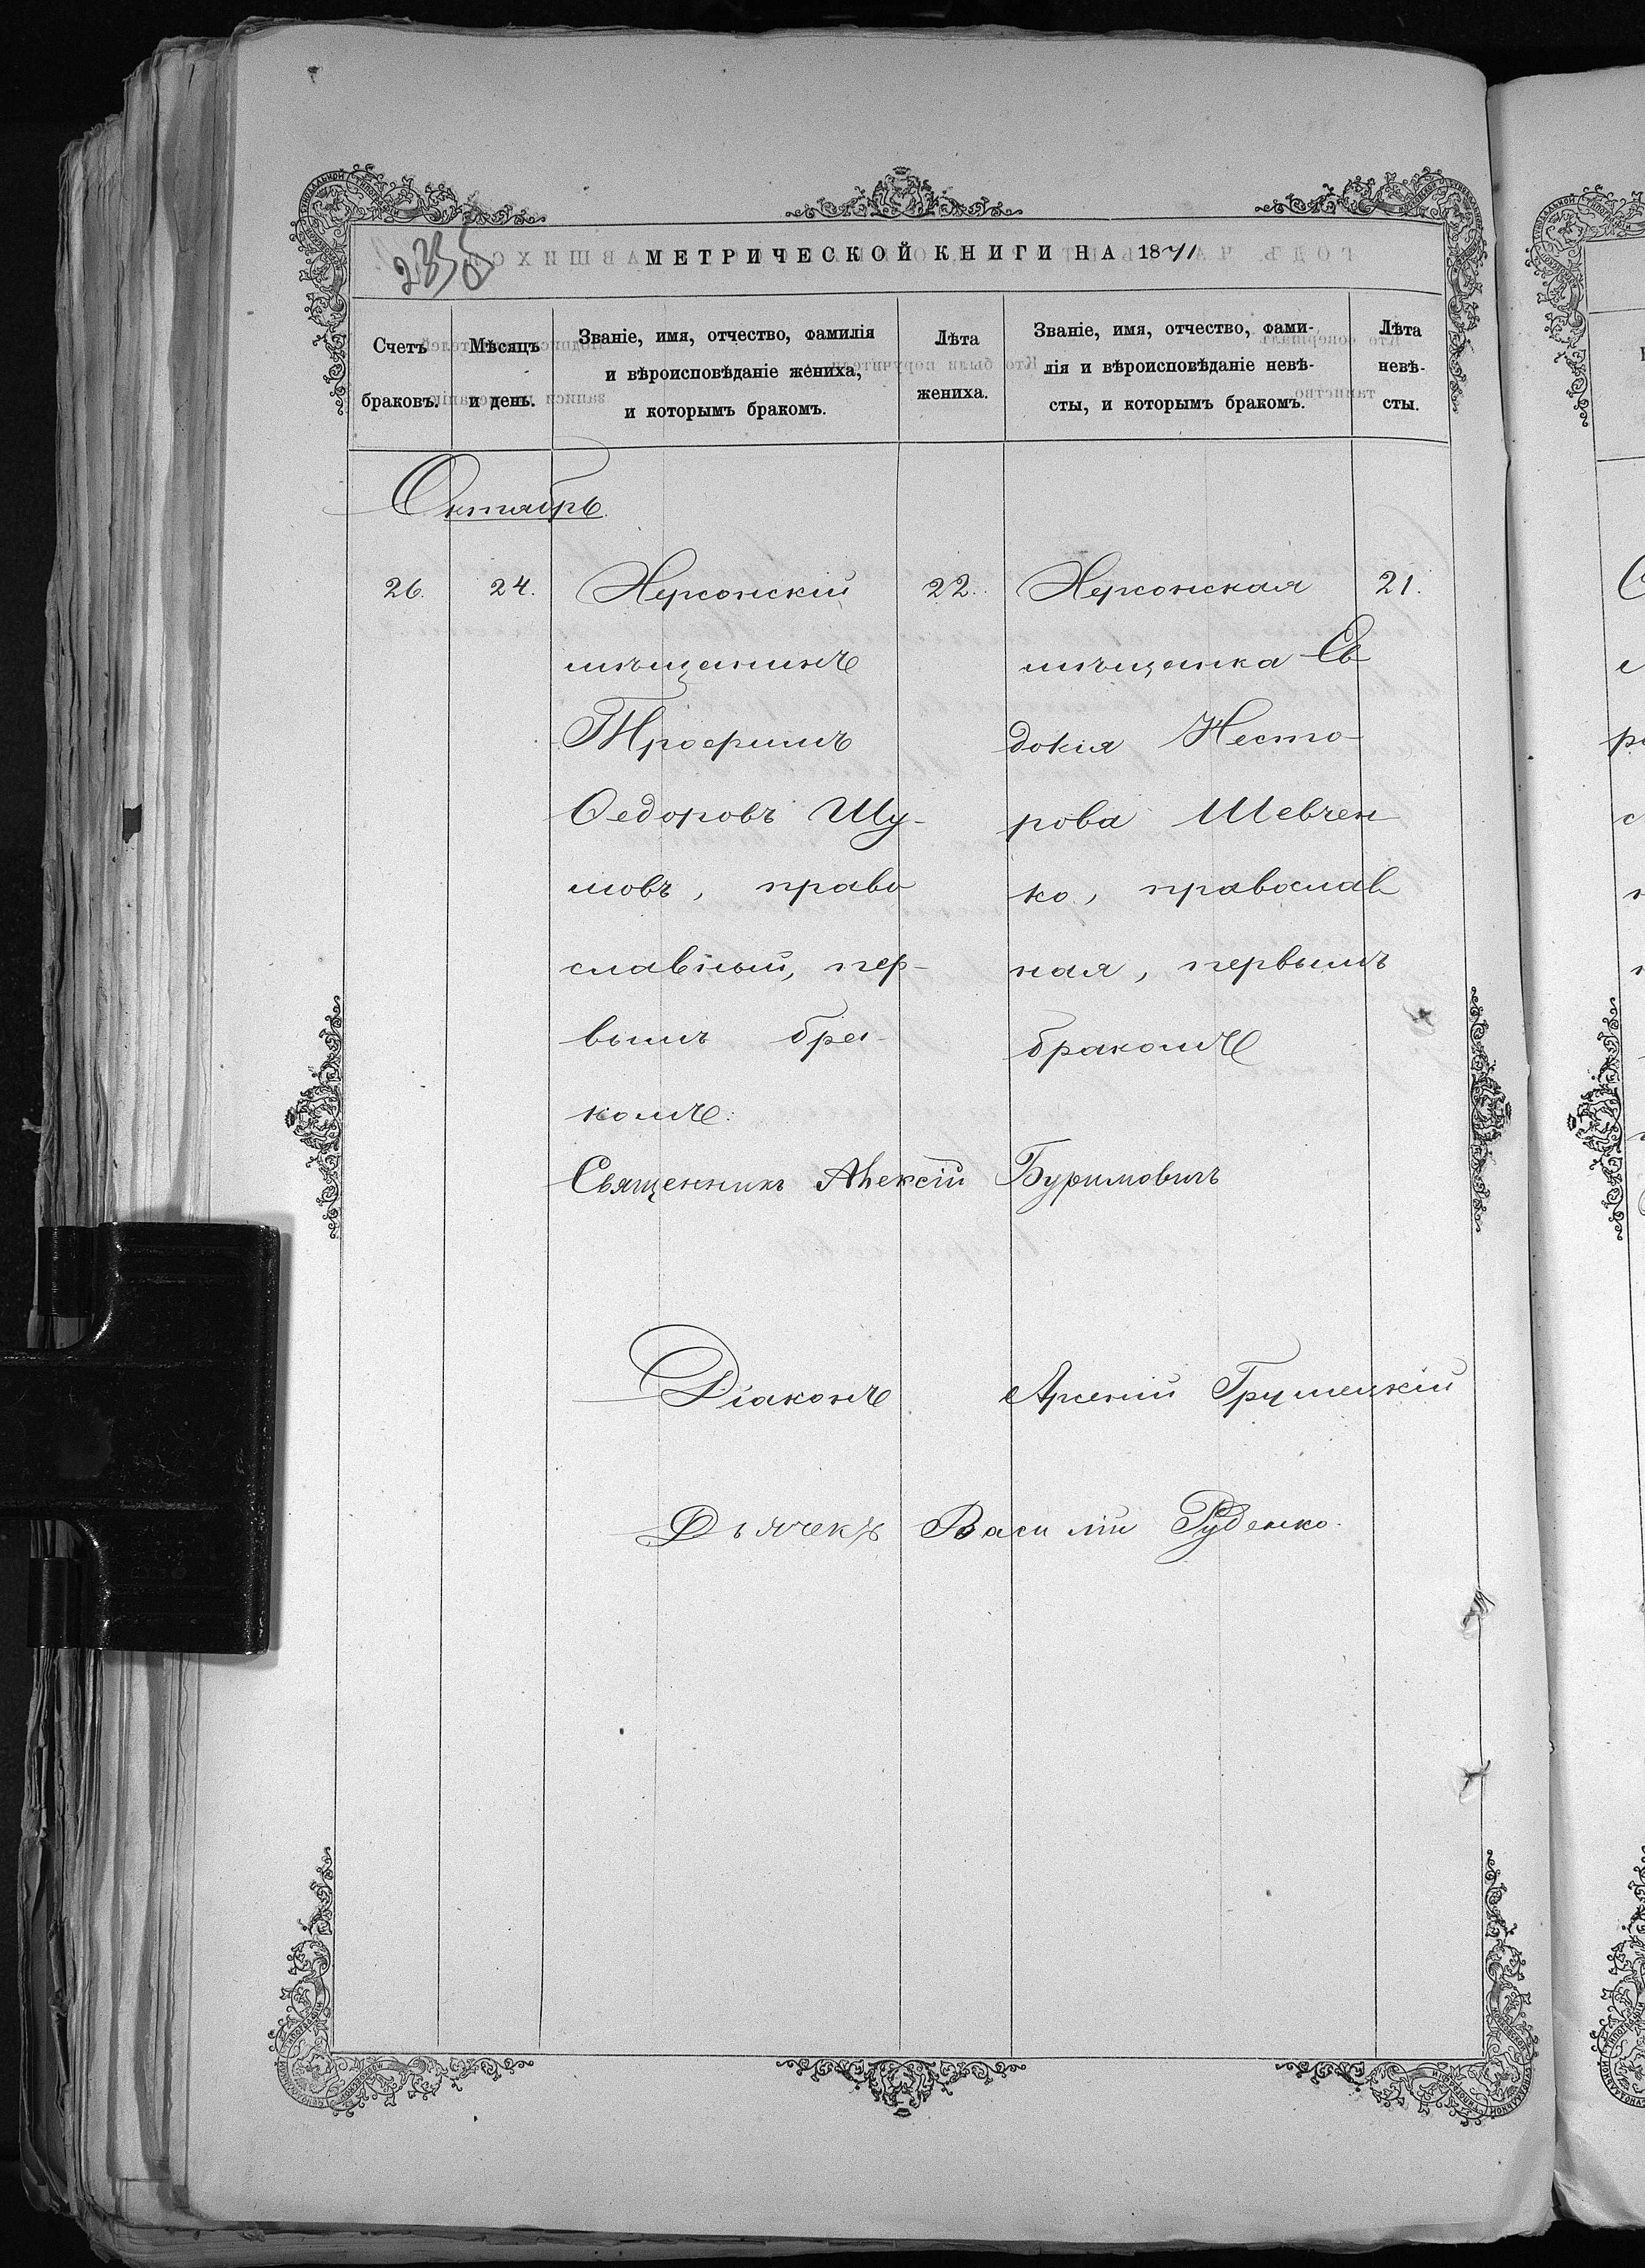 235
МЕТРИЧЕСКОЙ КНИГИ НА 1871
Счетъ браковъ.
Мѣсяцъ и день.
Званіе, имя, отчество, фамилія
и вѣроисповѣданіе жениха,
и которымъ бракомъ.
Лѣта
жениха.
Званіе, имя, отчество, фами-
лія и вѣроисповѣданіе невѣ-
сты, и которымъ бракомъ.
Лѣта
невѣ-
сты.
Октябрь.
26. 24.
Херсонскій
мѣщанинъ
Трофимъ
Ѳедоровъ Шу-
мовъ, право
славный, пер-
вымъ бра-
комъ.
22.
Херсонская
мѣщанка Ев
докія Несто-
рова Шевчен
ко, православ
ная, первымъ
бракомъ
21.
Священникъ Алексій Буримовичъ
Діаконъ Арсеній
Дьячекъ Василій Руденко.